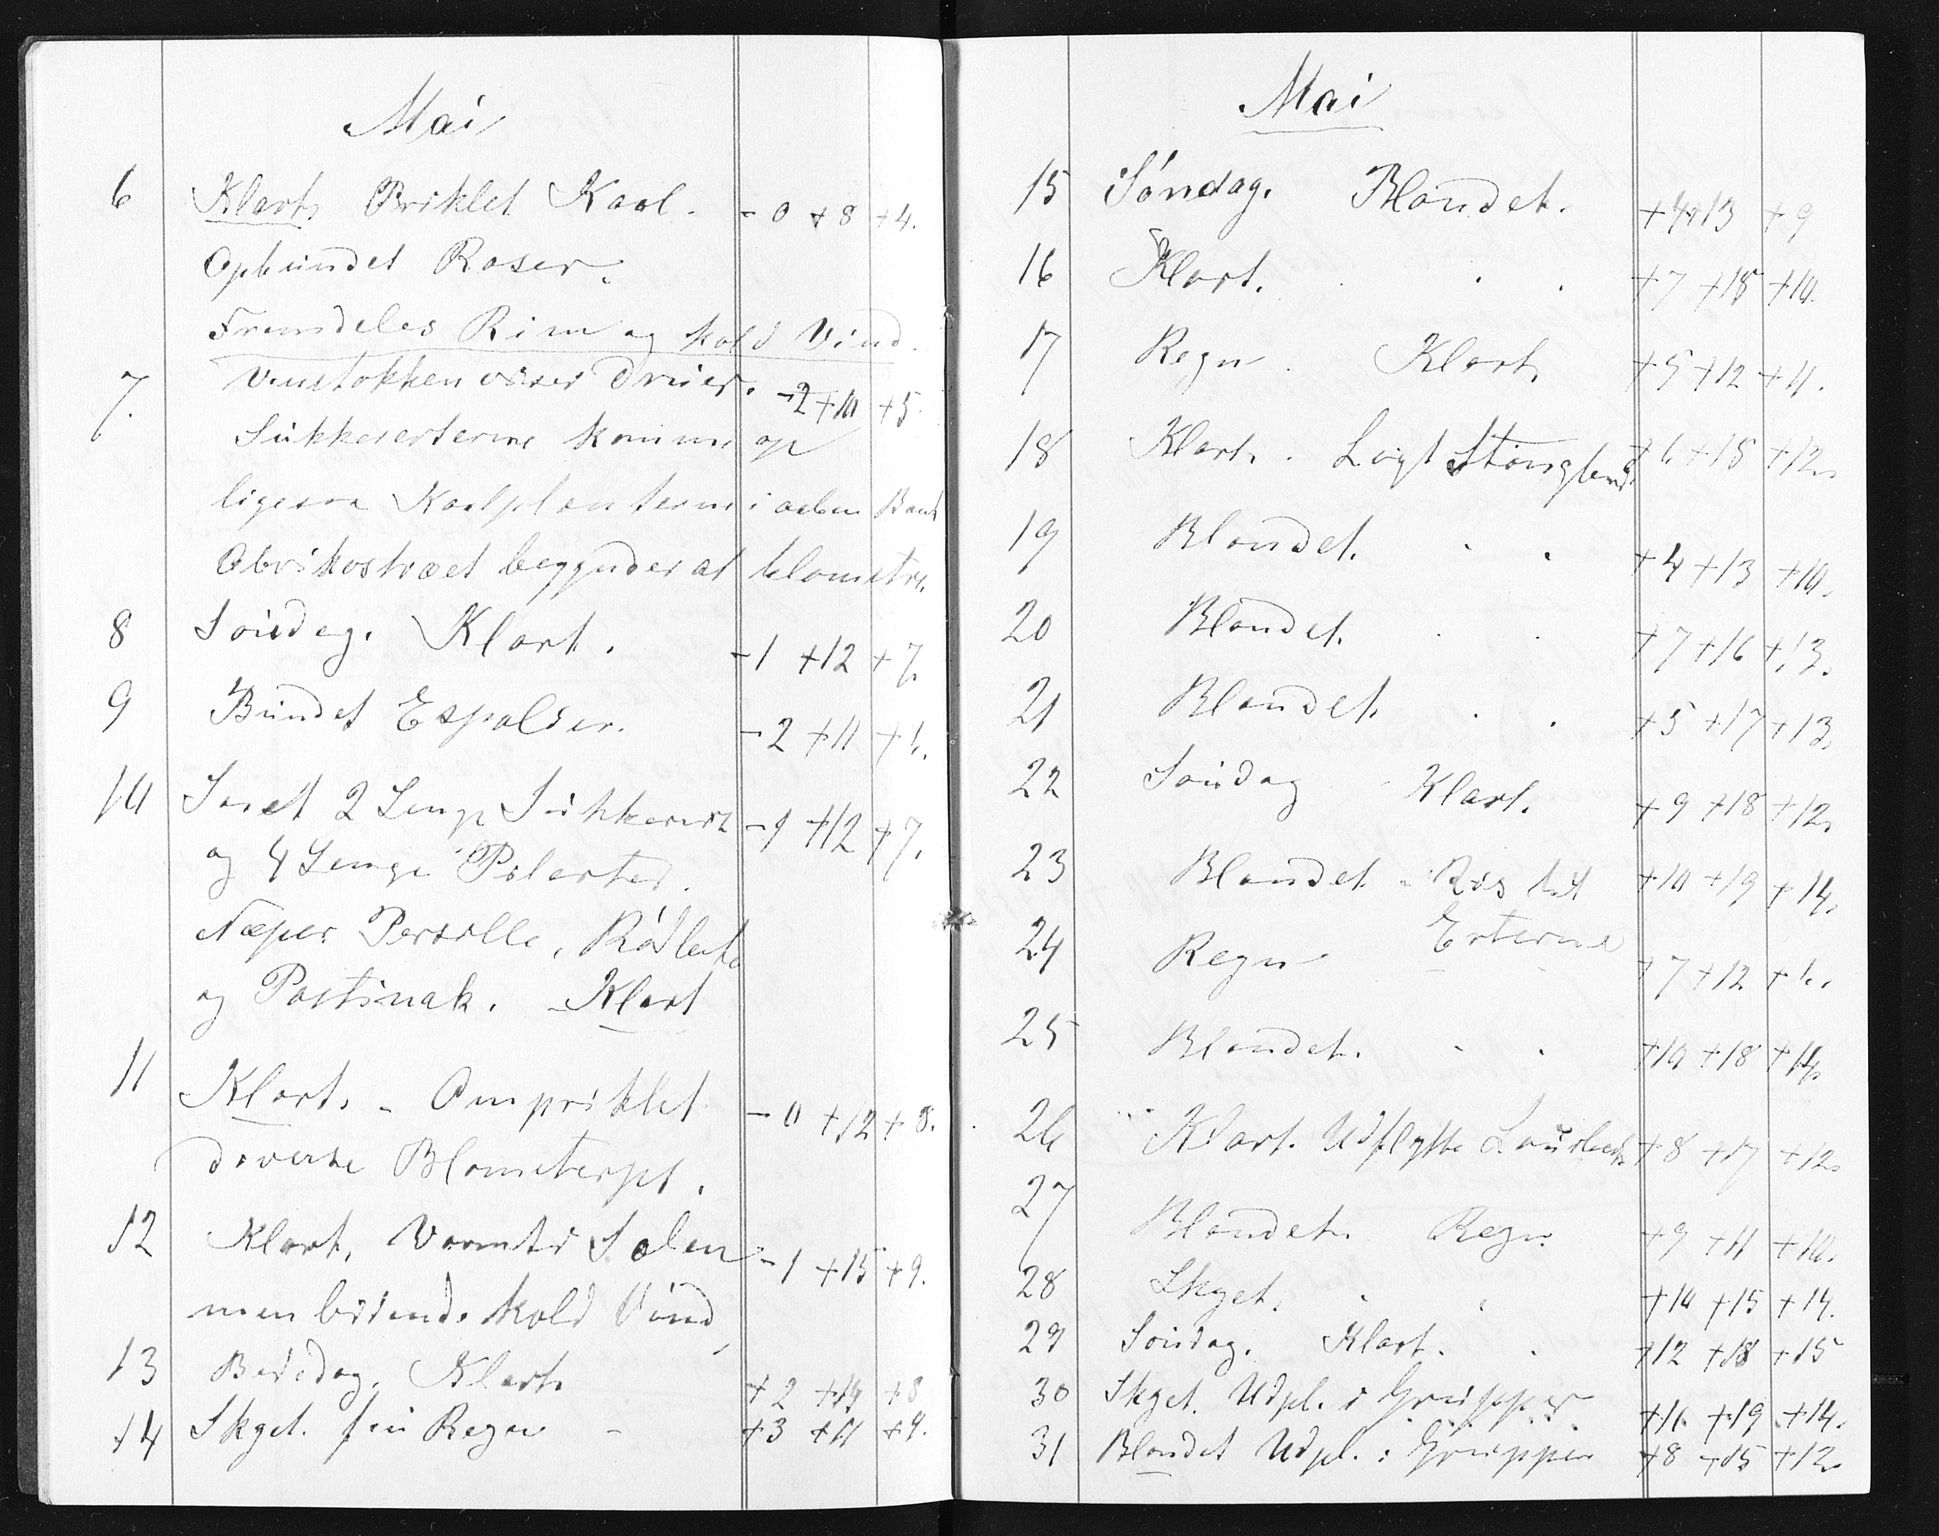 Mai
6 Klart. Priklet Kaal. -0 +8 +4.
Opbundet Roser.
Fremdeles Rim og kold Vind.
7. Vinstokken viser Druer. -2 +10 +5.
Sukkererterne komme op
ligesaa Kaalplanterne i aaben Bænk
Abrikostræet begynder at blomstre.
8 Søndag. Klart. -1 +12 +7.
9 Bundet Espalier. -2 +11 +6.
10 Saaet 2 Senge Sukkerert -1 +12 +7.
og 4 Senge Pilerter.
Næper Persille, Rødbeder
og Pastinak. - Klart
11 Klart. - Ompriklet -0 +12 +8.
diverse Blomsterpl.
12 Klart. Varmt i Solen -1 +15 +9.
men bidende kold Vind
13 Bededag. Klart. +2 +14 +8
14 Skyet. fin Regn - +3 +11 +9.
Mai
15 Søndag. Blandet. +4 +13 +9
16 Klart. +7 +18 +10.
17 Regn. Klart. +5 +12 +11.
18 Klart. Lagt Stængler +6 +18 +12.
19 Blandet. +4 +13 +10.
20 Blandet. +7 +16 +13.
21 Blandet. +5 +17 +13.
22 Søndag Klart. +9 +18 +12.
23 Blandet - Ris til +10 +19 +14.
Erterne
24 Regn +7 +12 +6.
25 Blandet. +10 +18 +14.
26 Klart. Udflytte +8 +17 +12.
27 Blandet. Regn. +9 +11 +10.
28 Skyet. +10 +15 +14.
29 Søndag. Klart. +12 +18 +15
30 Skyet. Udpl. i Grupper +11. +19 +14.
31 Blandet Udpl. i Grupper +8 +15 +12.